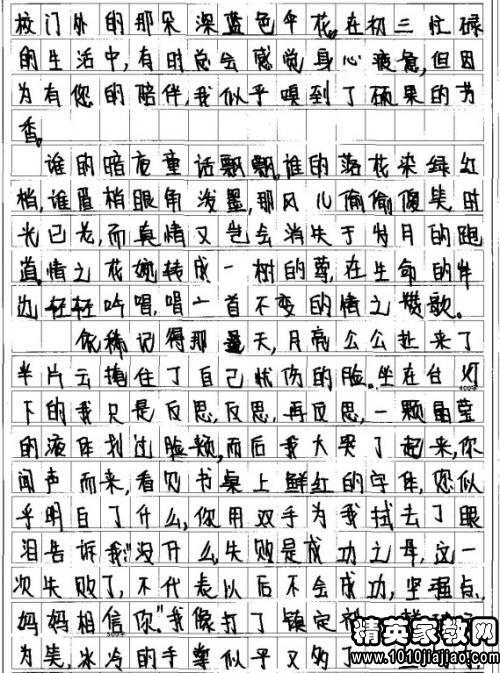 校门外的那朵深蓝色伞花。在初三忙碌
的生活中,有时总会感觉身心疲惫,但因
为有您的陪伴,我似乎嗅到了硕果的芳
香。
谁的暗夜童话飘飘,谁的落花染绿红
梢,谁眉梢眼角泼墨,那风儿偷偷傻笑,时
光已老,而真情又岂会消失于岁月的跑
道。情之花婉转成一树的萼,在生命的岸
边轻轻吟唱,唱一首不变的情之赞歌。
依稀记得那是天,月亮公公赴来了
半片云掩住了自己忧伤的脸。坐在台灯
400字
下的我只是反思,反思,再反思,一颗晶莹
的液体划过脸颊,而后我大哭了起来,你
闻声而来,看见书桌上鲜红的字体,您似
乎明白了什么,你用双手为我拭去了眼
泪告诉我:"没什么,失败是成功之母,这一
次失败了,不代表以后不会成功,坚强点,
妈妈相信你"我像打了镇定
500字
为笑,冰冷的手掌似乎又够了
精英家教网
www.1010jiajiao.com